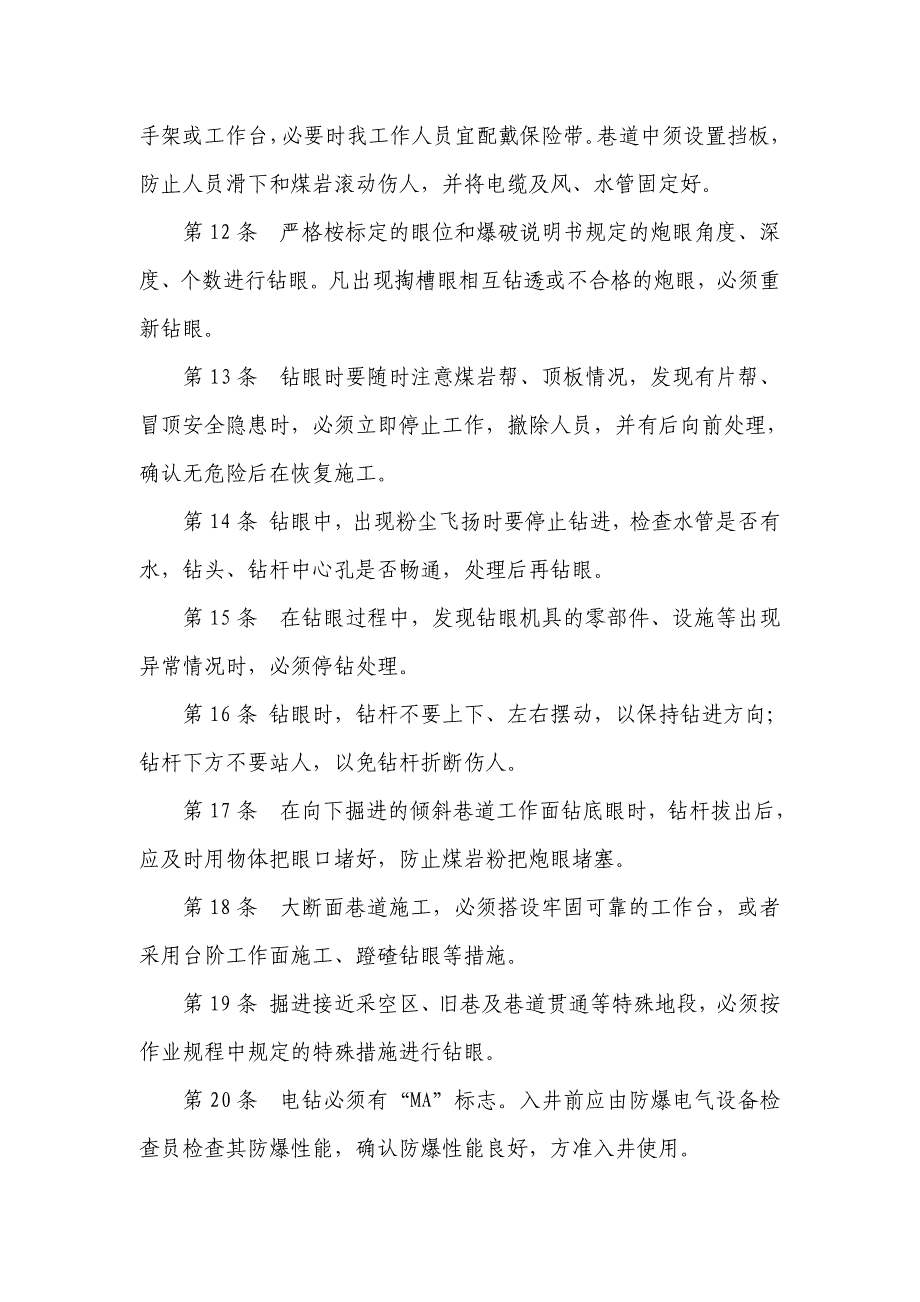 手架或工作台，必要时我工作人员宜配戴保险带。巷道中须设置挡板，
防止人员滑下和煤岩滚动伤人，并将电缆及风、水管固定好。
第12条　严格桉标定的眼位和爆破说明书规定的炮眼角度、深
度、个数进行钻眼。凡出现掏槽眼相互钻透或不合格的炮眼，必须重
新钻眼。
第13条　钻眼时要随时注意煤岩帮、顶板情况，发现有片帮、
冒顶安全隐患时，必须立即停止工作，撤除人员，并有后向前处理，
确认无危险后在恢复施工。
第14条 钻眼中，出现粉尘飞扬时要停止钻进，检查水管是否有
水，钻头、钻杆中心孔是否畅通，处理后再钻眼。
第15条　在钻眼过程中，发现钻眼机具的零部件、设施等出现
异常情况时，必须停钻处理。
第16条 钻眼时，钻杆不要上下、左右摆动，以保持钻进方向；
钻杆下方不要站人，以免钻杆折断伤人。
第17条　在向下掘进的倾斜巷道工作面钻底眼时，钻杆拔出后，
应及时用物体把眼口堵好，防止煤岩粉把炮眼堵塞。
第18条　大断面巷道施工，必须搭设牢固可靠的工作台，或者
采用台阶工作面施工、蹬碴钻眼等措施。
第19条 掘进接近采空区、旧巷及巷道贯通等特殊地段，必须按
作业规程中规定的特殊措施进行钻眼。
第20条　电钻必须有“MA”标志。入井前应由防爆电气设备检
查员检查其防爆性能，确认防爆性能良好，方准入井使用。